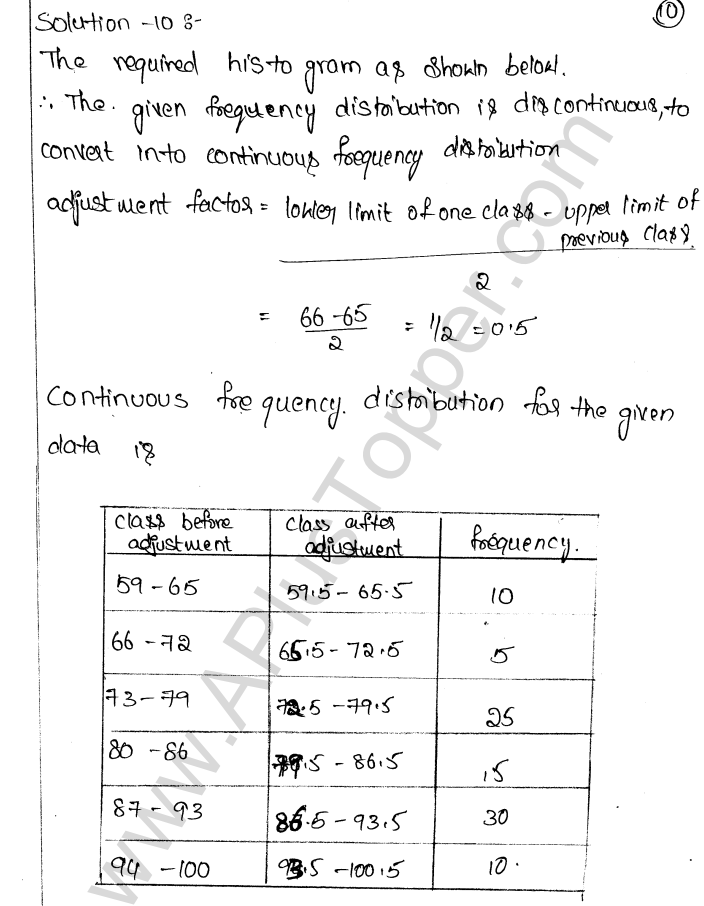 10
Solution -10 :-
The required histogram as shown below.
∴ The given frequency distribution is discontinuous, to
convert into continuous frequency distribution
adjustment factor = lower limit of one class - upper limit of
previous class.
2
= 66 - 65 / 2 = 1/2 = 0.5
Continuous frequency. distribution for the given
data is
class before adjustment | class after adjustment | frequency.
59 - 65 | 59.5 - 65.5 | 10
66 - 72 | 65.5 - 72.5 | 5
73 - 79 | 72.5 - 79.5 | 25
80 - 86 | 79.5 - 86.5 | 15
87 - 93 | 86.5 - 93.5 | 30
94 - 100 | 93.5 - 100.5 | 10.
www.APlusTopper.com